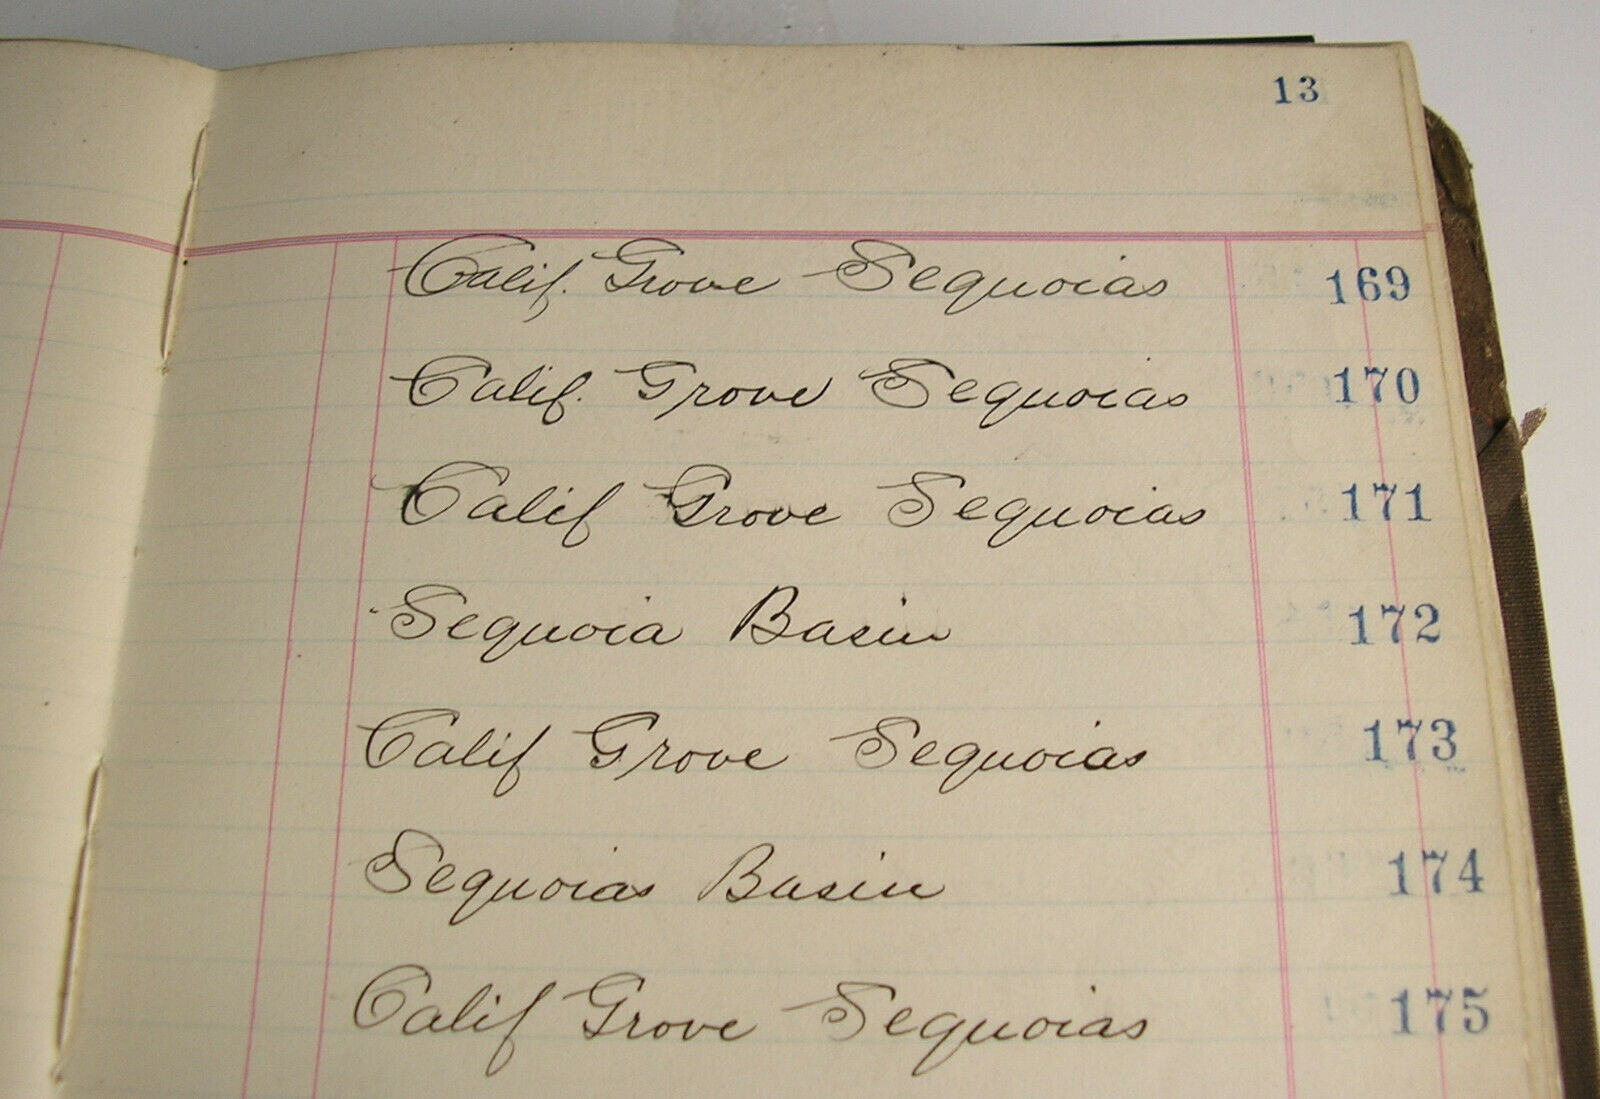 13
Calif. Grove Sequoias 169
Calif. Grove Sequoias 170
Calif Grove Sequoias 171
Sequoia Basin 172
Calif Grove Sequoias 173
Sequoias Basin 174
Calif Grove Sequoias 175